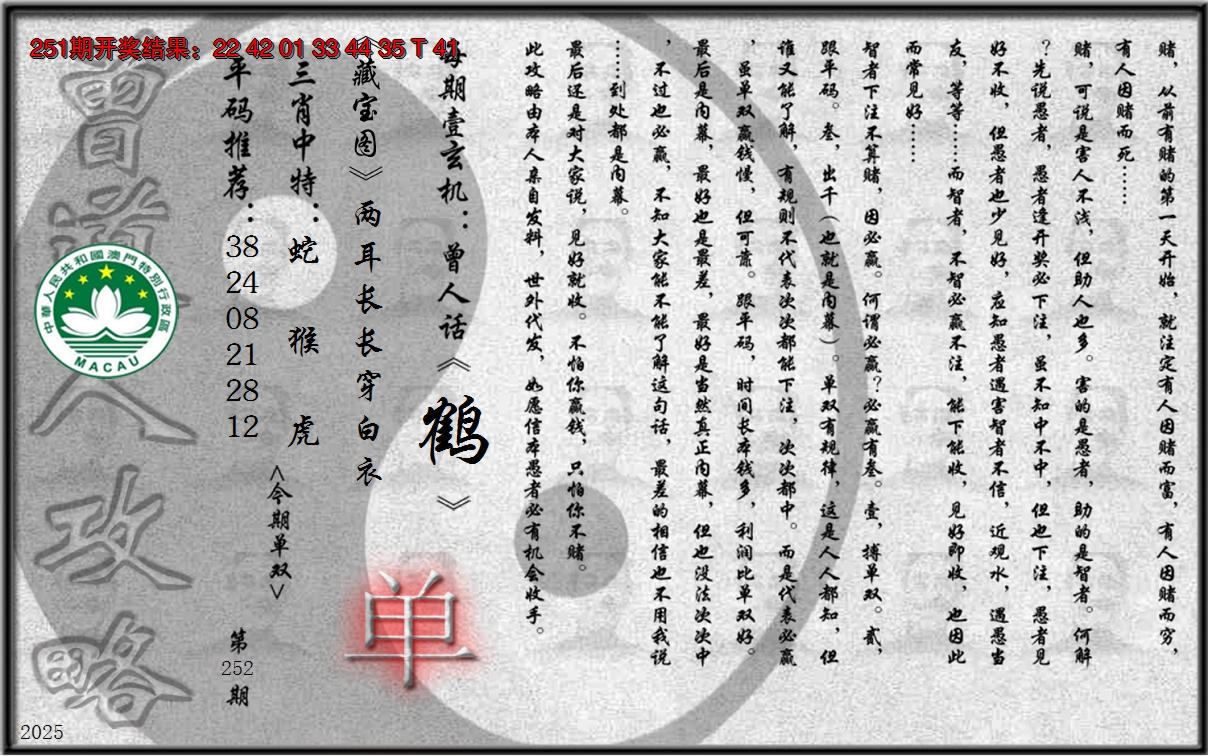 251期开奖结果：22 42 01 33 44 35 T 41
赌，从前有赌的第一天开始，就注定有人因赌而富，有人因赌而穷，
有人因赌而死……
赌，可说是害人不浅，但助人也多。害的是愚者，助的是智者。何解
？先说愚者，愚者逢开奖必下注，虽不知中不中，但也下注，愚者见
好不收，但愚者也少见好，应知愚者遇害智者不信，近观水，遇愚当
友，等等……而智者，不智必赢不注，能下能收，见好即收，也因此
而常见好……
智者下注不算赌，因必赢。何谓必赢？必赢有叁。壹，搏单双。贰，
跟平码。叁，出千（也就是内幕）。单双有规律，这是人人都知，但
谁又能了解，有规则不代表次次都能下注，次次都中。而是代表必赢
，虽单双赢钱慢，但可靠。跟平码，时间长本钱多，利润比单双好。
最后是内幕，最好也是最差，最好是当然真正内幕，但也没法次次中
，不过也必赢，不知大家能不能了解这句话，最差的相信也不用我说
……到处都是内幕。
最后还是对大家说，见好就收。不怕你赢钱，只怕你不赌。
此攻略由本人亲自发料，世外代发，如愿信本愚者必有机会收手。
每期壹玄机：曾人话《鹤》
《藏宝图》两耳长长穿白衣
单
三肖中特：蛇 猴 虎
<今期单双>
平码推荐：
38
24
08
21
28
12
第
252
期
曾道人攻略
中華人民共和國澳門特別行政區
MACAU
2025